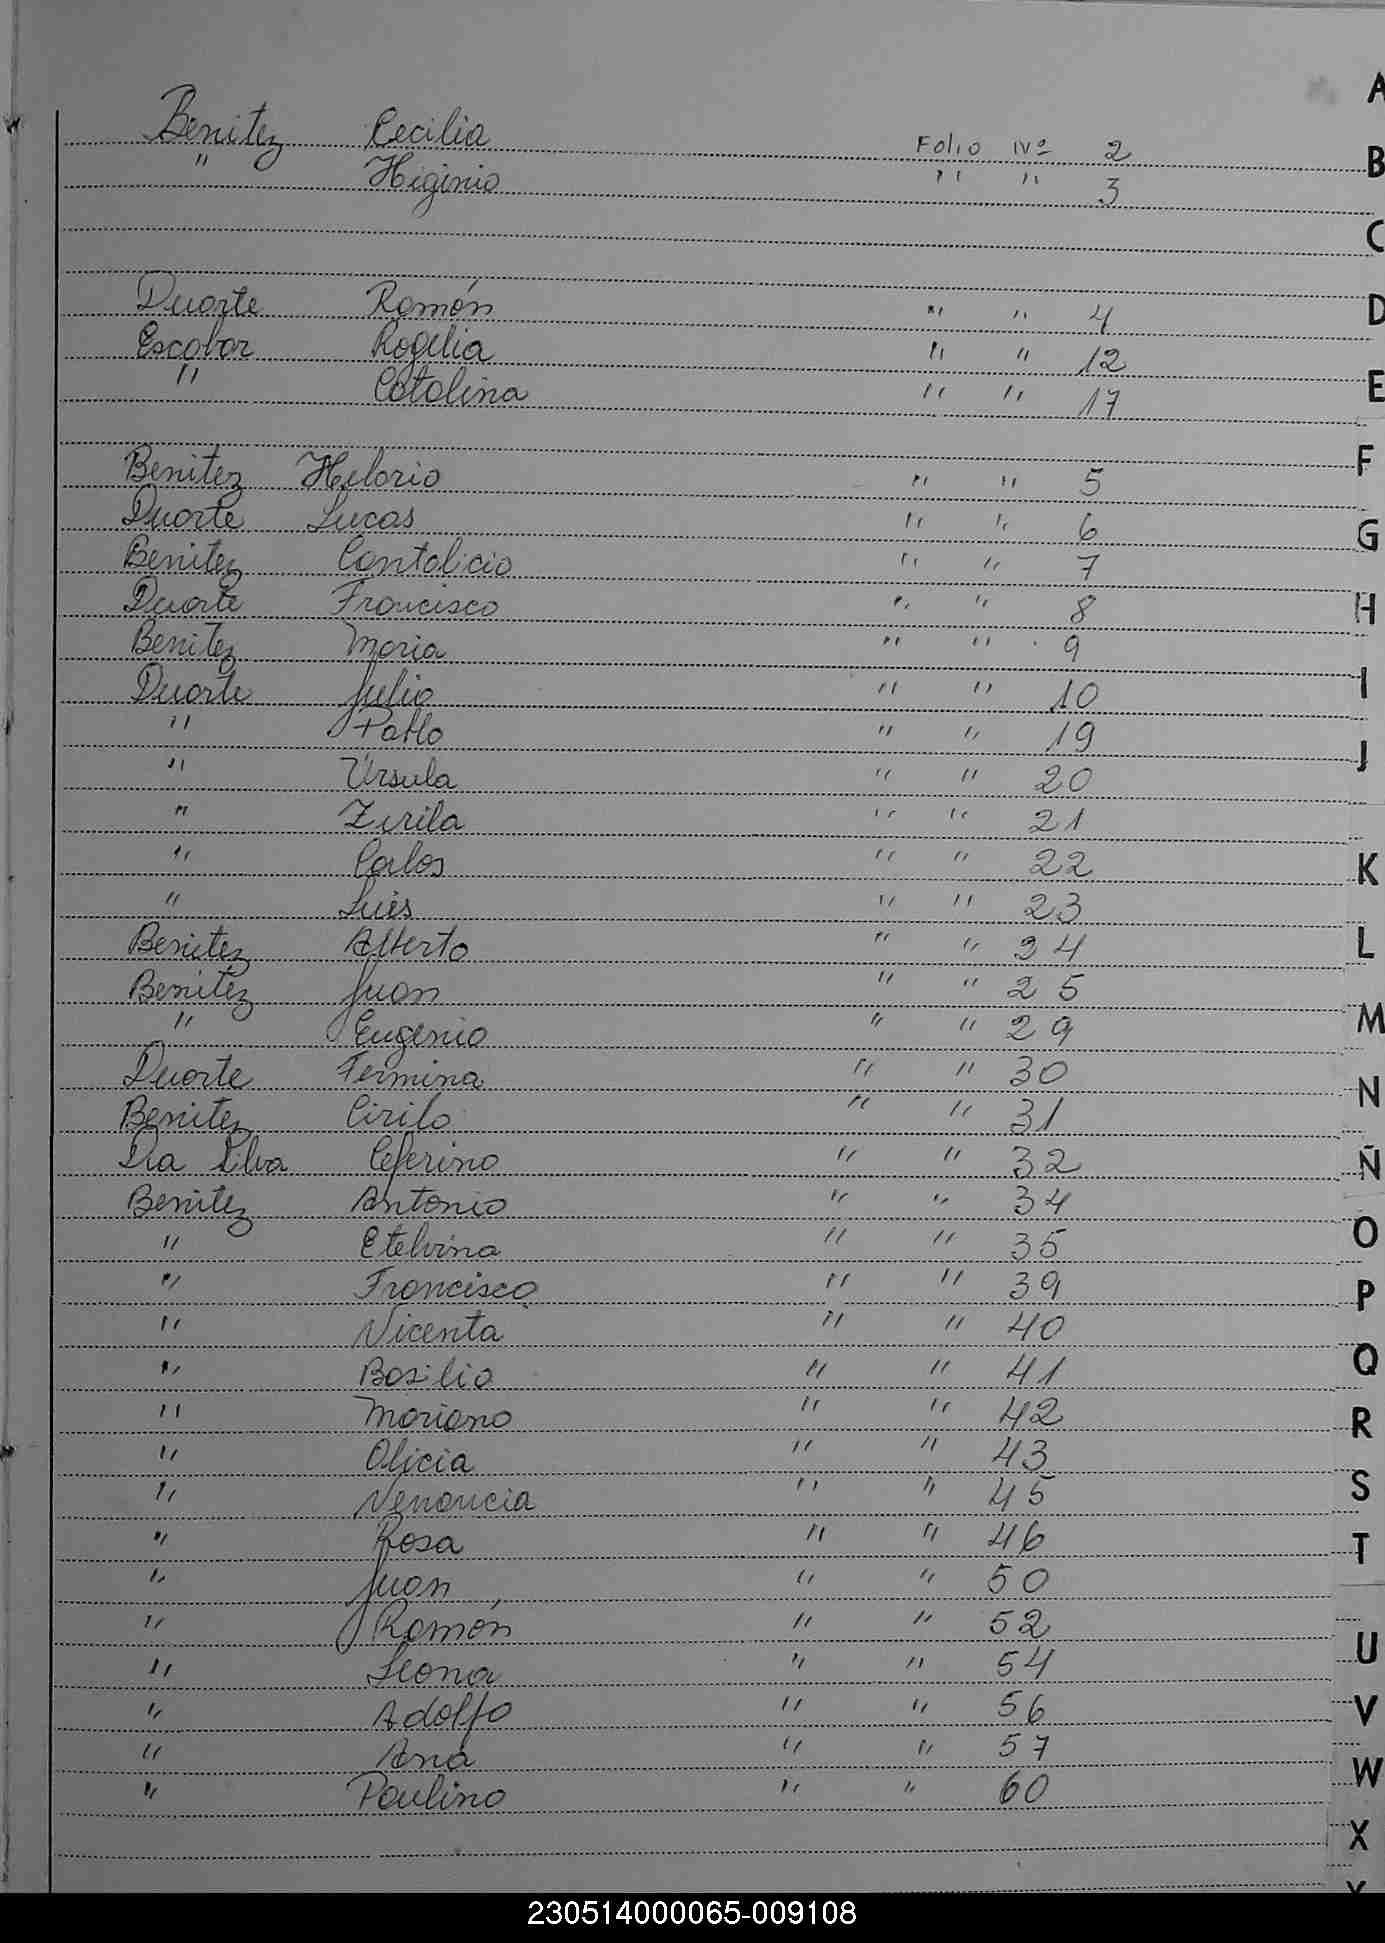 A
Benitez Cecilia Folio Nº 2
B
" Higinio " " 3
C
Duarte Ramón " " 4
D
Escobar Rogelia " " 12
" Catalina " " 17
E
F
Benitez Hilario " " 5
Duarte Lucas " " 6
G
Benitez Cantalicio " " 7
Duarte Francisco " " 8
H
Benitez Maria " " 9
Duarte Julio " " 10
I
" Pablo " " 19
J
" Ursula " " 20
" Zirila " " 21
" Carlos " " 22
K
" Luis " " 23
Benitez Alberto " " 24
L
Benitez Juan " " 25
" Eugenio " " 29
M
Duarte Fermina " " 30
N
Benitez Cirilo " " 31
Da Silva Ceferino " " 32
Ñ
Benitez Antonio " " 34
" Etelvina " " 35
O
" Francisco " " 39
P
" Vicenta " " 40
" Basilio " " 41
Q
" Mariano " " 42
R
" Olicia " " 43
" Venancia " " 45
S
" Rosa " " 46
T
" Juan " " 50
" Ramón " " 52
U
" Leona " " 54
" Adolfo " " 56
V
" Ana " " 57
W
" Paulino " " 60
X
Y
230514000065-009108